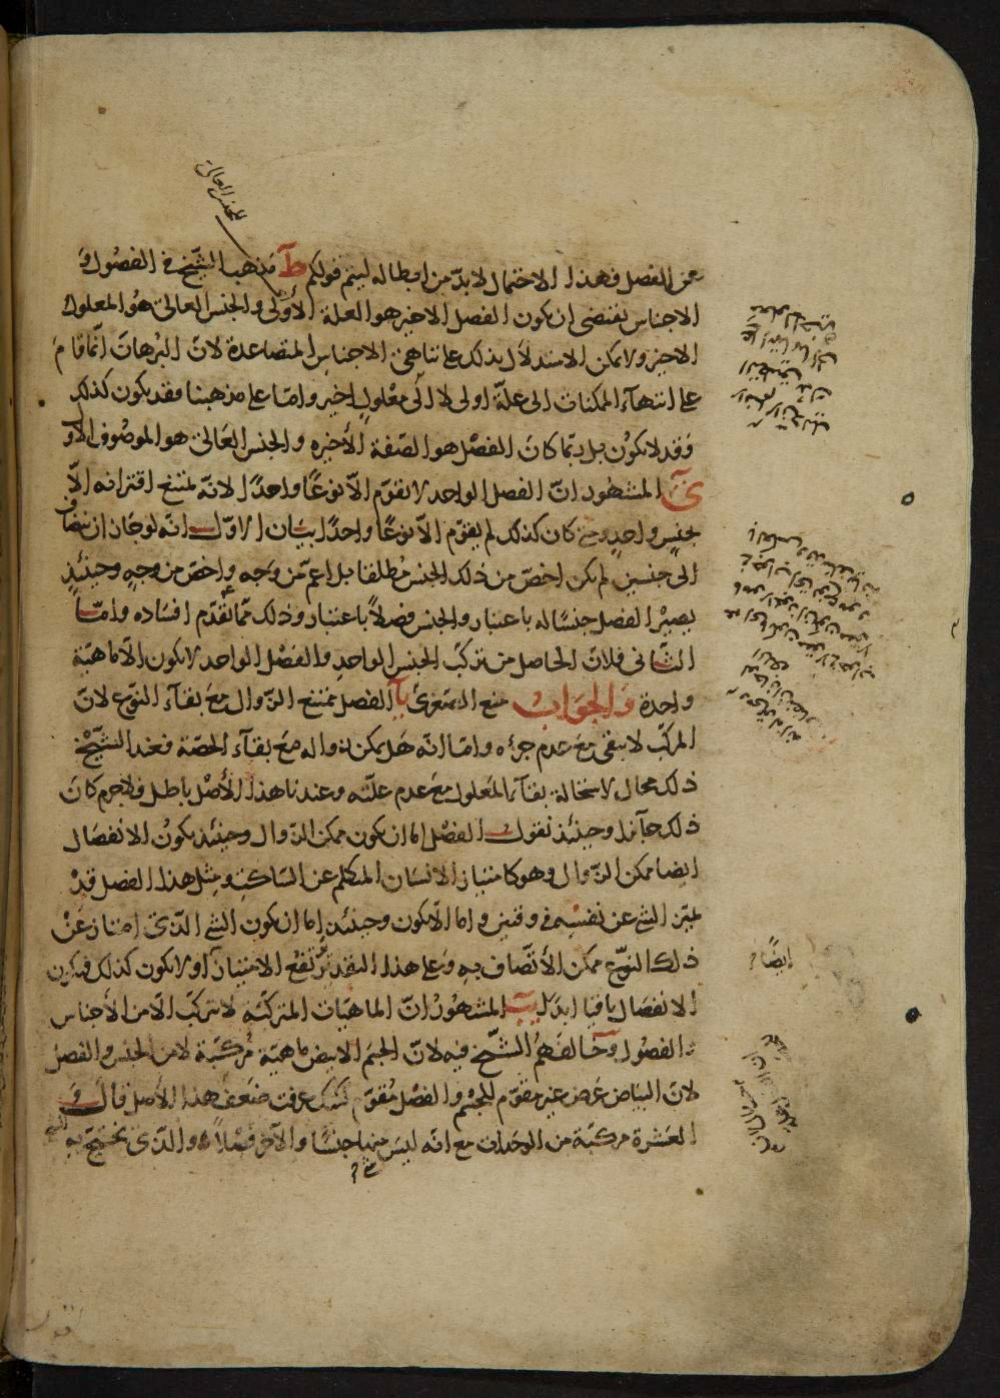 عن الفصل فهذا الاحتمال لا بدّ من ابطاله ليتم قولكم طآ مذهب الشيخ في الفصول و
الاجناس يقتضى ان يكون الفصل الاخير هو العلة الأولى والجنس العالى هو المعلول
الاخير ولا يمكن الاستدلال بذلك على تناهى الاجناس المتصاعدة لانّ البرهان انّما قام
على انتهاء الممكنات الى علّة اولى لا الى معلول اخير وامّا على مذهبنا فقد يكون كذلك
وقد لا يكون بل ربّما كان الفصل هو الصّفة الأخيره والجنس العالى هو الموصوف الاو
المشهور انّ الفصل الواحد لا يقوّم الّا نوعًا واحدًا لانّه يمتنع اقترانه الّا
بجنس واحد ومتى كان كذلك لم يقوّم الّا نوعًا واحدًا بيان الاوّل انّه لو جاز ان ينضاف
الى جنسين لم يكن اخصّ من ذلك الجنس مطلقا بل اعمّ من وجه واخصّ من وجه وحينئذ
يصير الفصل جنسًا له باعتبار والجنس فصلًا باعتبار وذلك ممّا تقدّم افساده وامّا
الثّانى فلانّ الحاصل من تركّب الجنس الواحد والفصل الواحد لا يكون الّا ماهيّة
واحدة والجواب منع الصّغرى يآ الفصل يمتنع الزّوال مع بقاء النّوع لانّ
المركّب لا يبقى مع عدم جزءه وامّا انّه هل يمكن زواله مع بقاء الحصّة فعند الشّيخ
ذلك محال لاستحالة بقاء المعلول مع عدم علّته وعندنا هذا الأصل باطل فلا جرم كان
ذلك جائزا وحينئذ نقول الفصل اما ان يكون ممكن الزّوال وحينئذ يكون الانفصال
ايضا ممكن الزّوال وهو كامتياز الانسان المتكلم عن السّاكت ومثل هذا الفصل قد
يميّز الشئ عن نفسه فى وقتين واما الّا يكون وحينئذ إما ان يكون الشئ الّذى امتاز عن
ذلك النوع ممكن الأتّصاف به وعلى هذا التقدير يرتفع الامتياز او لا يكون كذلك فيكون
الانفصال باقيا ابدًا يبَ المشهور انّ الماهيّات المتركّبة لا تتركّب الّا من الأجناس
والفصول وخالفهم الشّيخ فيه لانّ الجسم الابيض ماهيّة مركّبة لا من الجنس والفصل
لانّ البياض عرض غير مقوّم للجسم والفصل مقوّم لكنك عرفت ضعف هذا الأصل قال و
العشرة مركّبة من الوحدات مع انّه ليس منها جنسًا والآخر فصلًا والّذى نحتجّ به
ايضًا